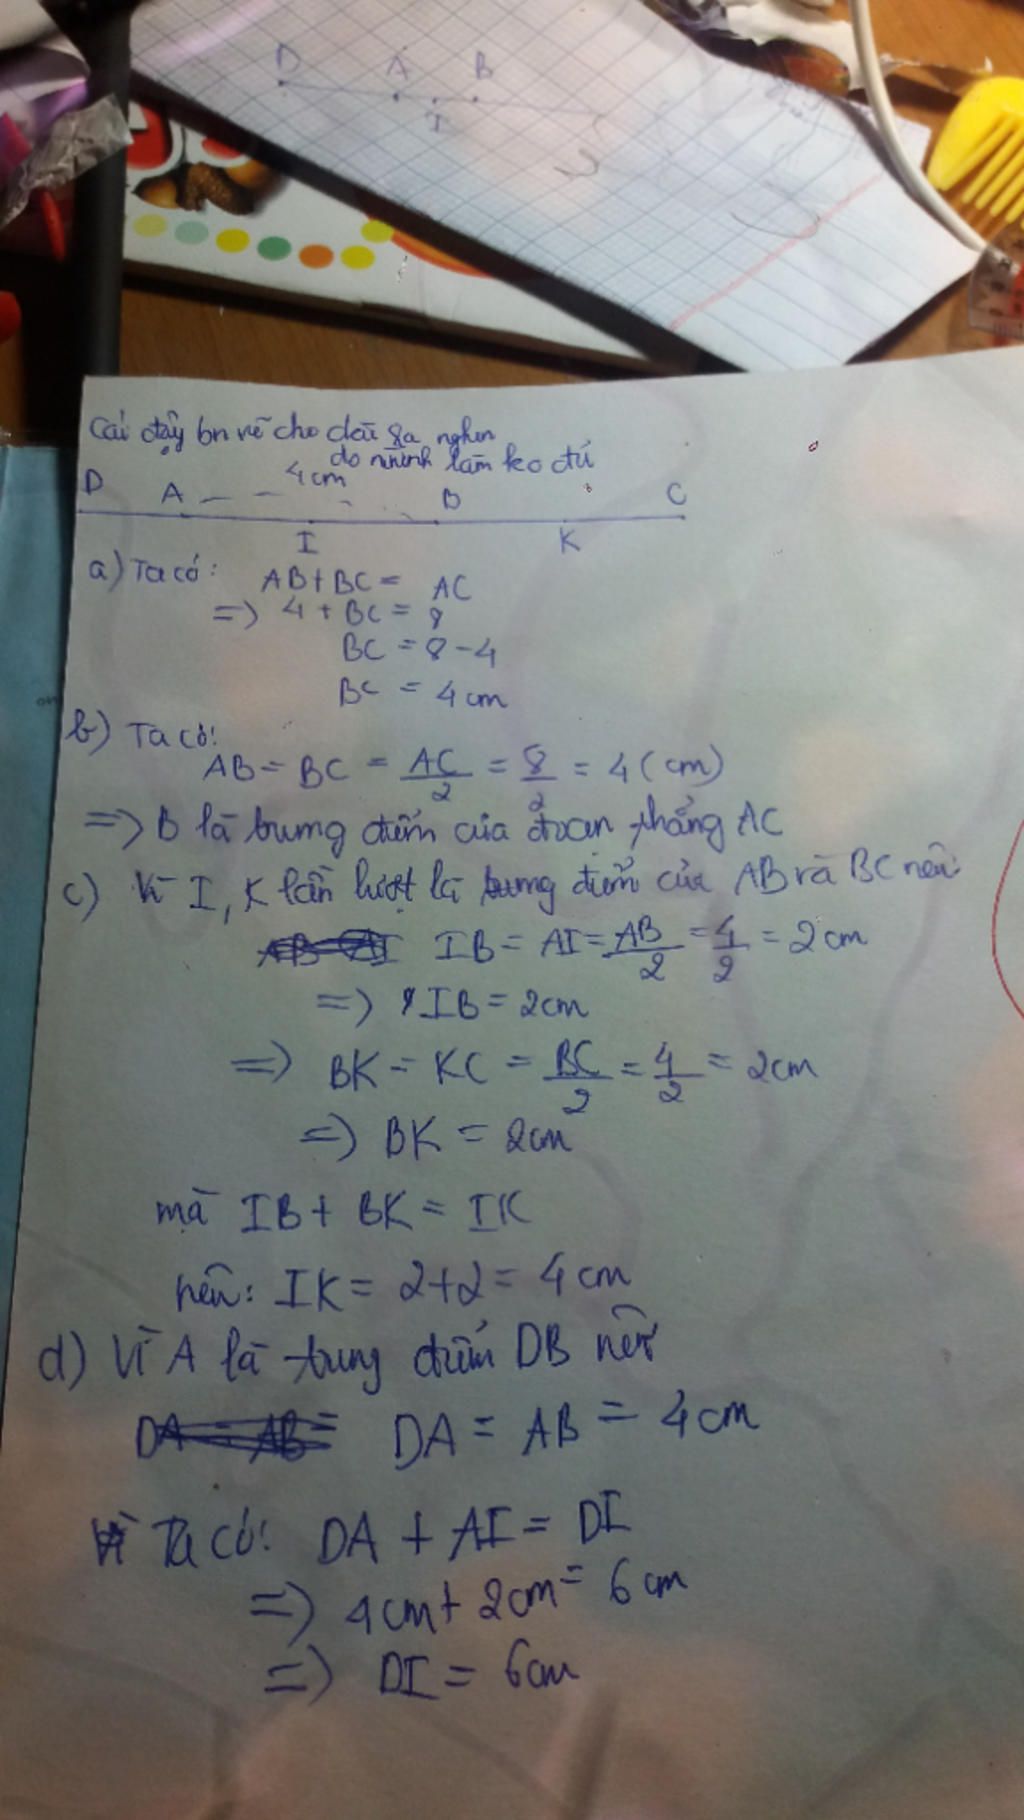 D A B
I
Cái đậy bn vẽ cho dài ra nghen
do mình làm ko đủ
4cm
D A B C
I K
a) Ta có: AB + BC = AC
=> 4 + BC = 8
BC = 8 - 4
BC = 4 cm
b) Ta có:
AB = BC = AC/2 = 8/2 = 4 (cm)
=> B là trung điểm của đoạn thẳng AC
c) Vì I, K lần lượt là trung điểm của AB và BC nên
IB = AI = AB/2 = 4/2 = 2cm
=> IB = 2cm
=> BK = KC = BC/2 = 4/2 = 2cm
=> BK = 2cm
mà IB + BK = IK
nên: IK = 2+2 = 4 cm
d) Vì A là trung điểm DB nên
DA = AB = 4cm
Ta có: DA + AI = DI
=> 4cm + 2cm = 6cm
=> DI = 6cm